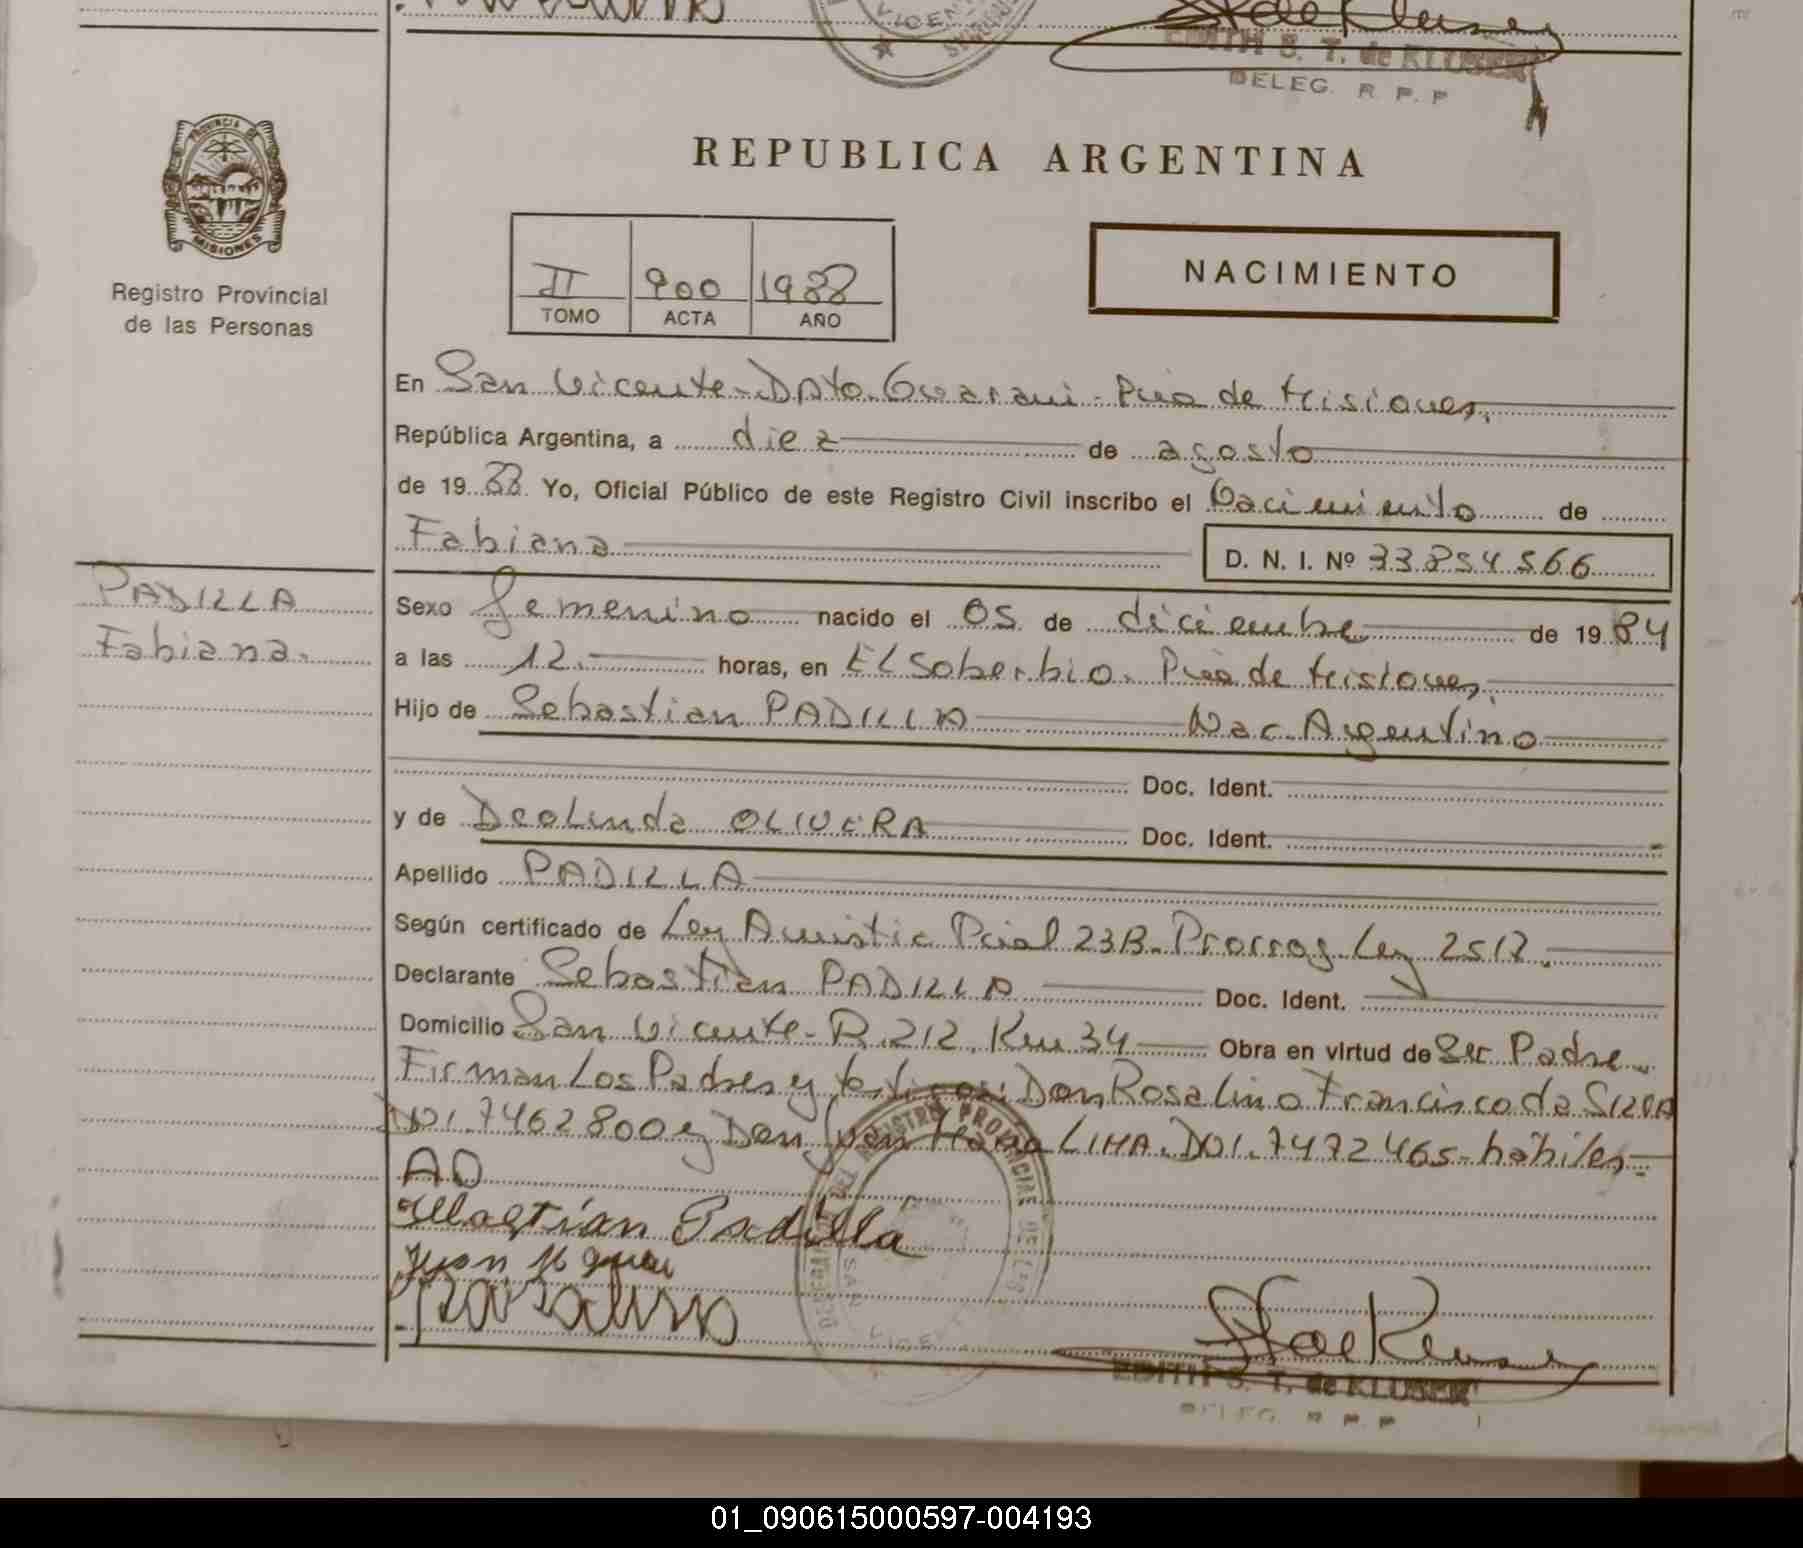 EDITH S. T. de KLUSER
DELEG. R. P. P
PROVINCIA DE
MISIONES
Registro Provincial
de las Personas
REPUBLICA ARGENTINA
II 900 1988
TOMO ACTA AÑO
NACIMIENTO
En San Vicente - Dpto. Guarani - Pcia de Misiones.
República Argentina, a diez de agosto
de 1988 Yo, Oficial Público de este Registro Civil inscribo el Nacimiento de
Fabiana D. N. I. Nº 33854566
PADILLA
Fabiana.
Sexo femenino nacido el 05 de diciembre de 1984
a las 12. horas, en El Soberbio. Pcia de Misiones.
Hijo de Sebastian PADILLA Nac. Argentino
Doc. Ident.
y de Deolinda OLIVERA Doc. Ident.
Apellido PADILLA
Según certificado de Ley Amnistia Pcial 23B. Prorrog. Ley 2517.
Declarante Sebastian PADILLA Doc. Ident.
Domicilio San Vicente - R. 212. Km 34 Obra en virtud de Ser Padre
Firman Los Padres y testigos: Don Rosalino Francisco da SILVA
DNI. 7462800 y Don Juan Maria LIMA. DNI. 7472465 - hábiles -
AD
Sebastian Padilla
Juan M
Rosalino
EDITH S. T. de KLUSER
DELEG. R. P. P
01_090615000597-004193